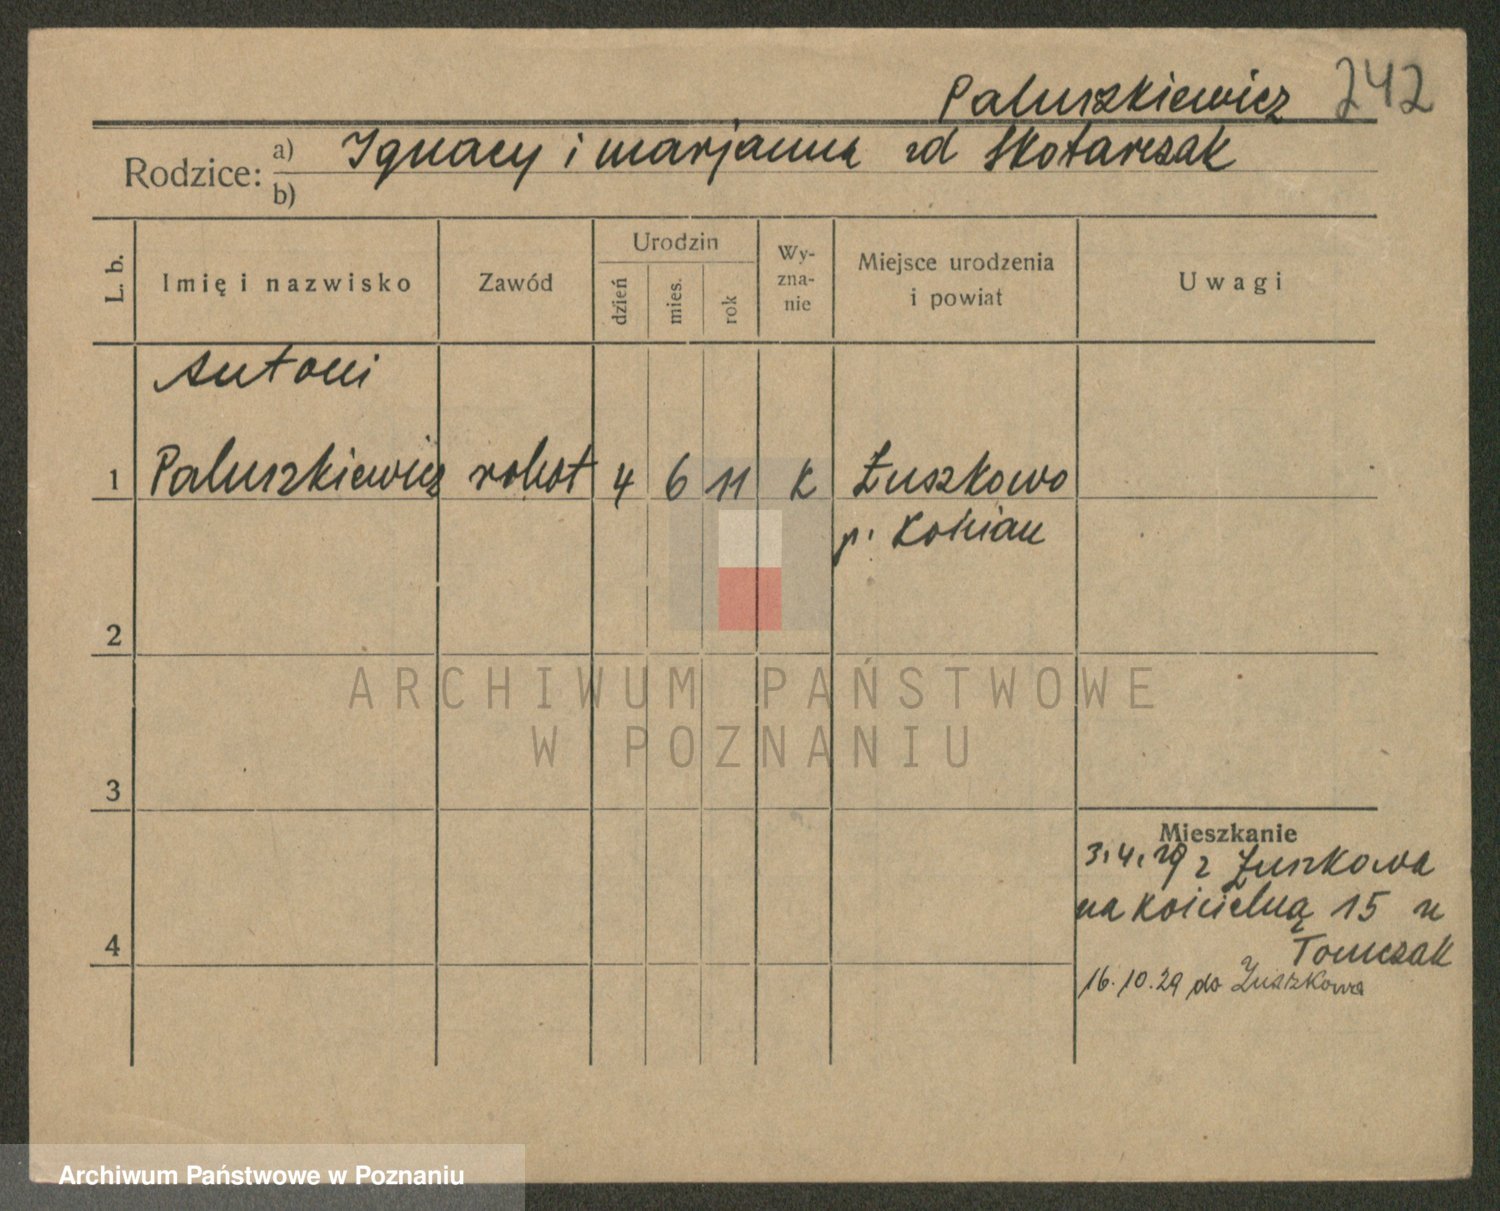 Paluszkiewicz 242
Rodzice: a) Ignacy i Marjanna zd Skotarczak
b)
L. b. Imię i nazwisko Zawód Urodzin dzień mies. rok Wyzna-nie Miejsce urodzenia i powiat Uwagi
Antoni
1 Paluszkiewicz robot 4 6 11 K Łuszkowo
p. Kościan
2
ARCHIWUM PAŃSTWOWE
W POZNANIU
3
Mieszkanie
3.4.29 z Łuszkowa
na Kościelną 15 u
4 Tomczak
16.10.29 do Łuszkowa
Archiwum Państwowe w Poznaniu